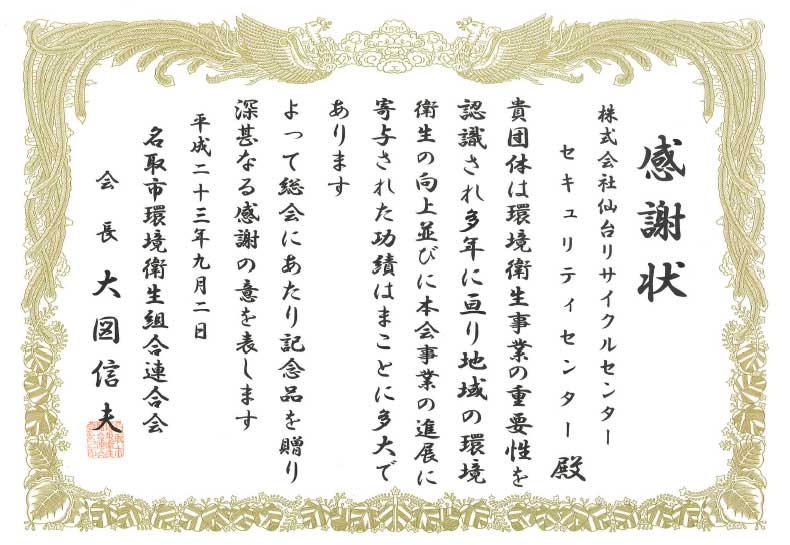 感謝状
株式会社仙台リサイクルセンター
セキュリティセンター 殿
貴団体は環境衛生事業の重要性を
認識され多年に亘り地域の環境
衛生の向上並びに本会事業の進展に
寄与された功績はまことに多大で
あります
よって総会にあたり記念品を贈り
深甚なる感謝の意を表します
平成二十三年九月二日
名取市環境衛生組合連合会
会長 大図信夫